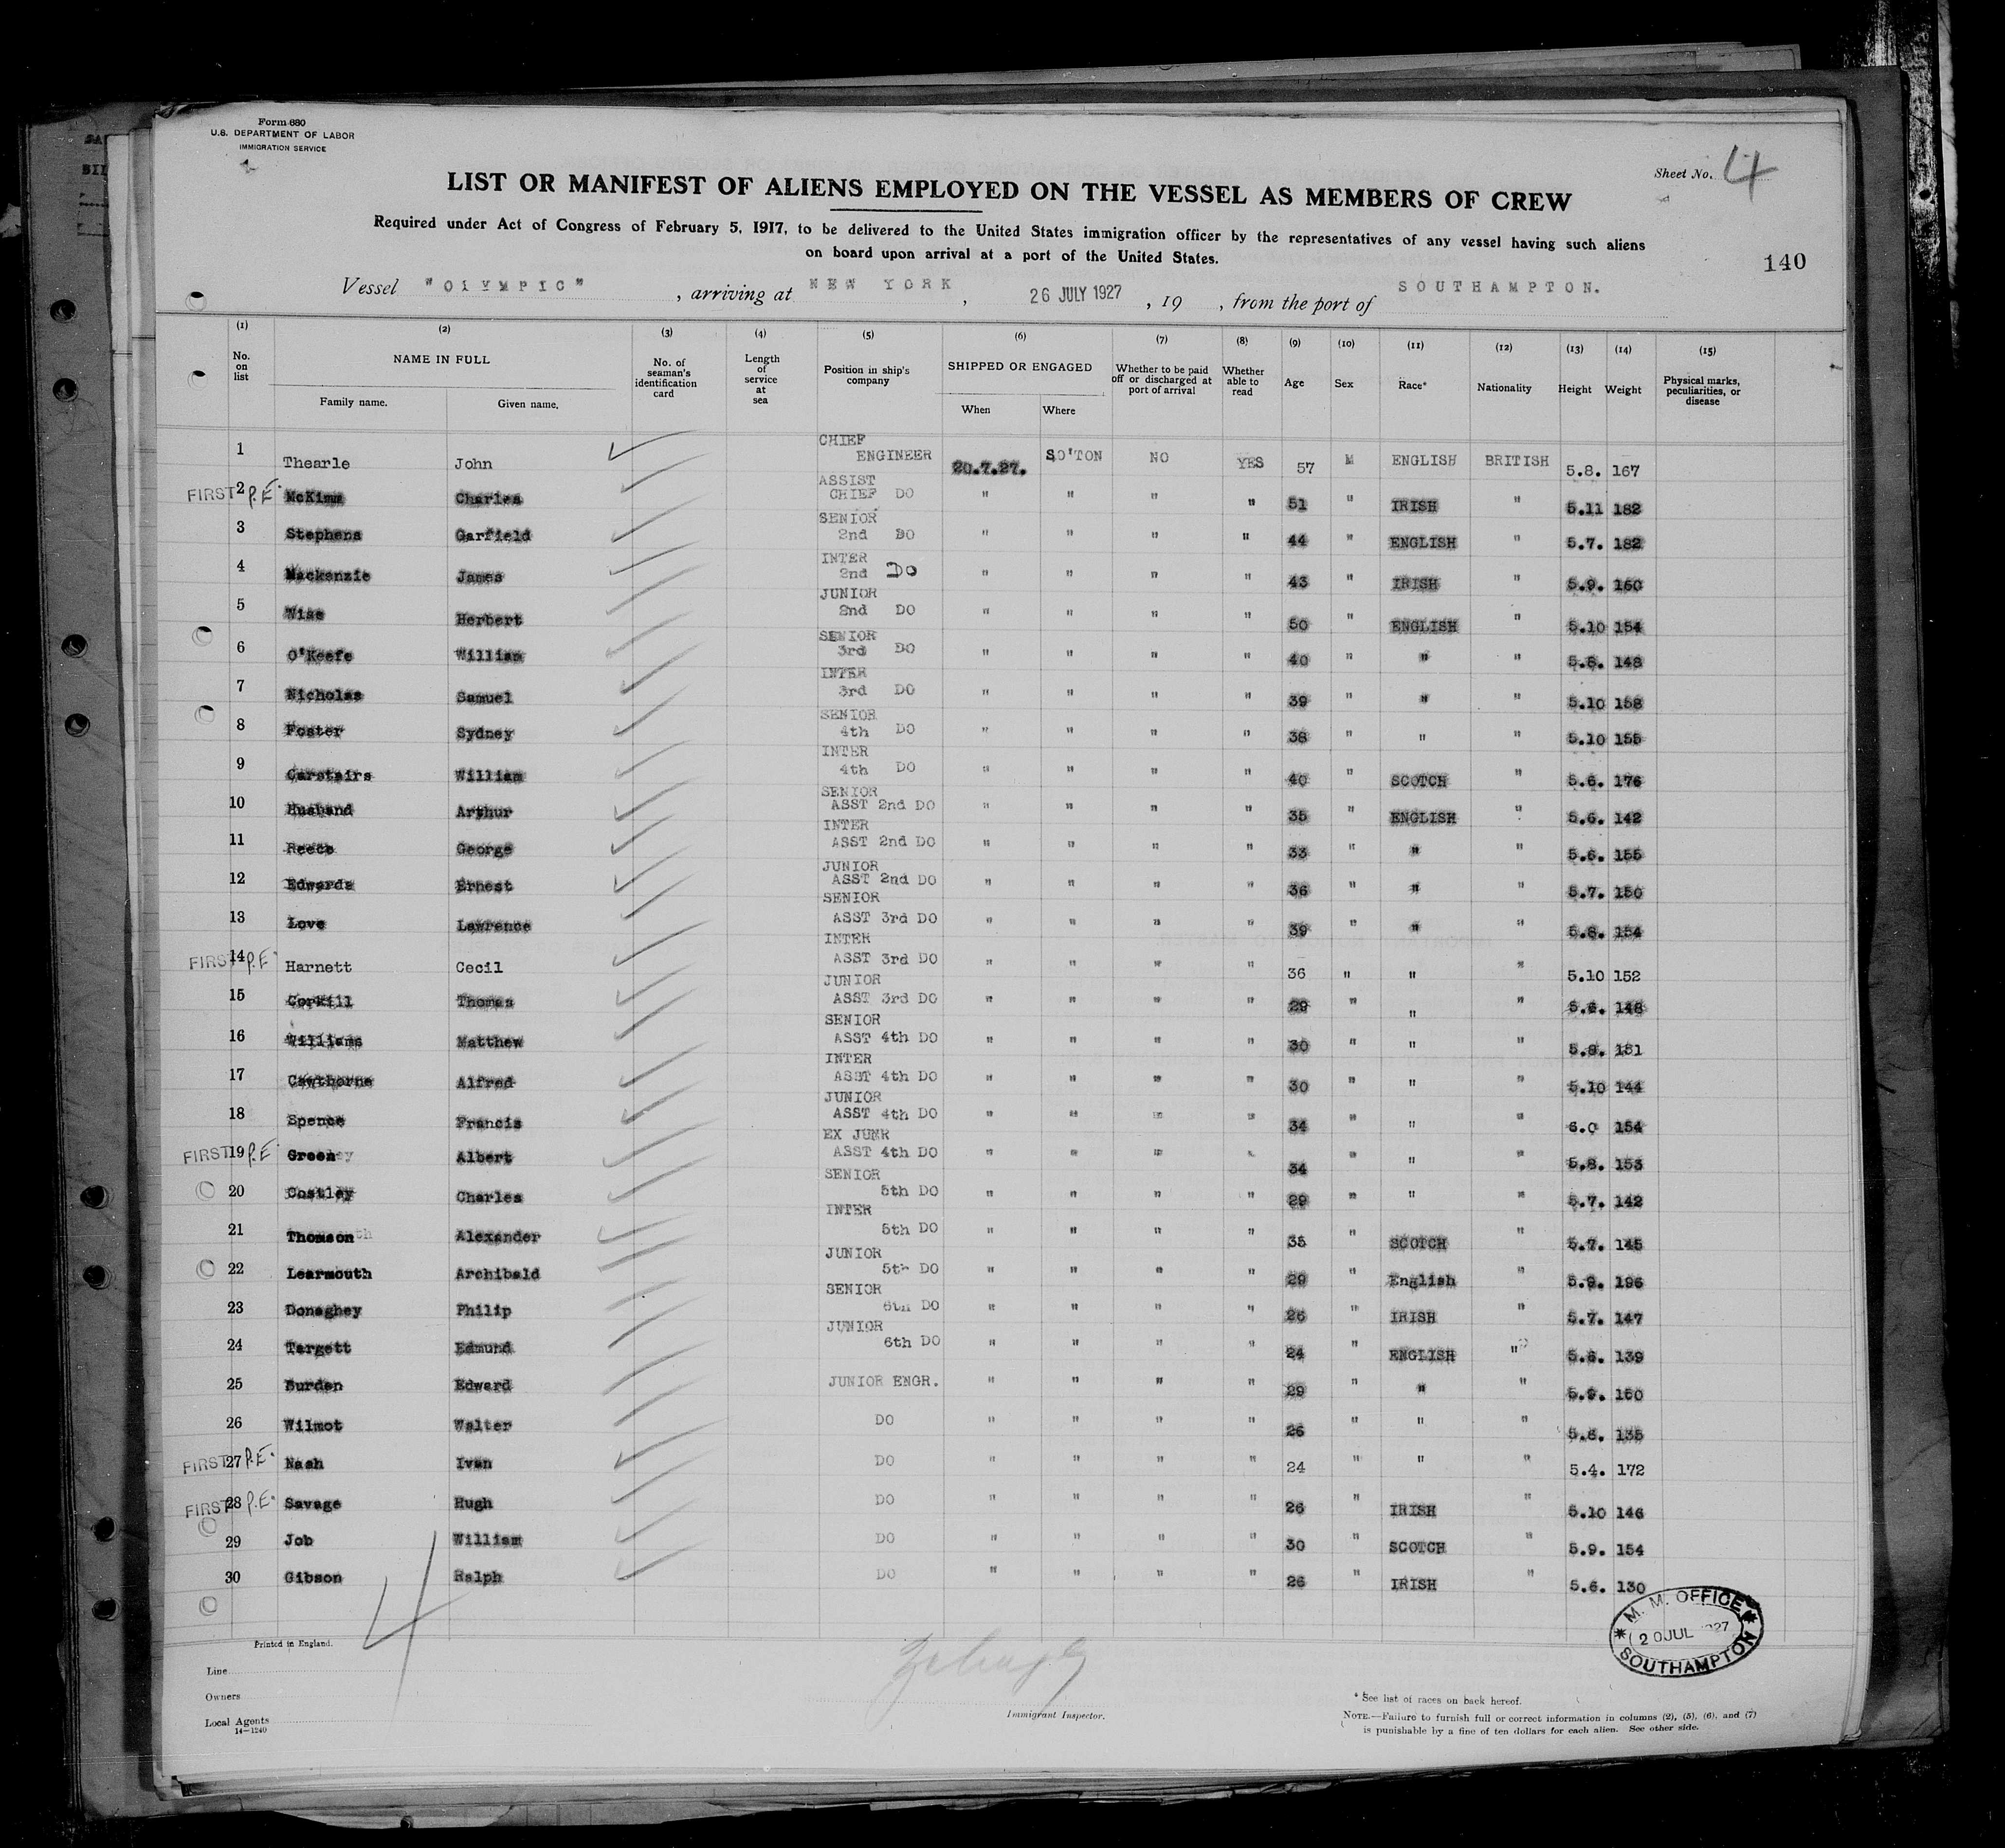 Form 680
U.S. DEPARTMENT OF LABOR
IMMIGRATION SERVICE
Sheet No. 4
LIST OR MANIFEST OF ALIENS EMPLOYED ON THE VESSEL AS MEMBERS OF CREW
Required under Act of Congress of February 5, 1917, to be delivered to the United States immigration officer by the representatives of any vessel having such aliens
on board upon arrival at a port of the United States.
140
Vessel "OLYMPIC" , arriving at NEW YORK , 26 JULY 1927 , 19 , from the port of SOUTHAMPTON.
(1) (2) (3) (4) (5) (6) (7) (8) (9) (10) (11) (12) (13) (14) (15)
No. on list NAME IN FULL Family name. Given name. No. of seaman's identification card Length of service at sea Position in ship's company SHIPPED OR ENGAGED When Where Whether to be paid off or discharged at port of arrival Whether able to read Age Sex Race* Nationality Height Weight Physical marks, peculiarities, or disease
1 Thearle John CHIEF ENGINEER 20.7.27. SO'TON NO YES 57 M ENGLISH BRITISH 5.8. 167
FIRST P.E. 2 McKimm Charles ASSIST CHIEF DO " " " " 51 " IRISH " 5.11 182
3 Stephens Garfield SENIOR 2nd DO " " " " 44 " ENGLISH " 5.7. 182
4 Mackenzie James INTER 2nd DO " " " " 43 " IRISH " 5.9. 160
5 Wise Herbert JUNIOR 2nd DO " " " " 50 " ENGLISH " 5.10 154
6 O'Keefe William SENIOR 3rd DO " " " " 40 " " " 5.8. 148
7 Nicholas Samuel INTER 3rd DO " " " " 39 " " " 5.10 158
8 Foster Sydney SENIOR 4th DO " " " " 38 " " " 5.10 155
9 Carstairs William INTER 4th DO " " " " 40 " SCOTCH " 5.6. 176
10 Husband Arthur SENIOR ASST 2nd DO " " " " 35 " ENGLISH " 5.6. 142
11 Reece George INTER ASST 2nd DO " " " " 33 " " " 5.6. 155
12 Edwards Ernest JUNIOR ASST 2nd DO " " " " 36 " " " 5.7. 150
13 Love Lawrence SENIOR ASST 3rd DO " " " " 39 " " " 5.8. 154
FIRST P.E 14 Harnett Cecil INTER ASST 3rd DO " " " " 36 " " " 5.10 152
15 Corkill Thomas JUNIOR ASST 3rd DO " " " " 29 " " " 5.6. 148
16 Williams Matthew SENIOR ASST 4th DO " " " " 30 " " " 131
17 Cawthorne Alfred INTER ASST 4th DO " " " " 30 " " " 5.10 144
18 Spence Francis JUNIOR ASST 4th DO " " " " 34 " " " 6.0 154
FIRST P.E. 19 Green Albert EX JUNR ASST 4th DO " " " " 34 " " " 5.8. 153
20 Costley Charles SENIOR 5th DO " " " " 29 " " " 5.7. 142
21 Thomson Alexander INTER 5th DO " " " " 35 " SCOTCH " 5.7. 145
22 Learmouth Archibald JUNIOR 5th DO " " " " 29 " English " 5.9. 196
23 Donaghey Philip SENIOR 6th DO " " " " 26 " IRISH " 5.7. 147
24 Targett Edmund JUNIOR 6th DO " " " " 24 " ENGLISH " 5.6. 139
25 Burden Edward JUNIOR ENGR. " " " " 29 " " " 150
26 Wilmot Walter DO " " " " 26 " " " 5.8. 135
FIRST P.E. 27 Nash Ivan DO " " " " 24 " " " 5.4. 172
FIRST P.E. 28 Savage Hugh DO " " " " 26 " IRISH " 5.10 146
29 Job William DO " " " " 30 " SCOTCH " 5.9. 154
30 Gibson Ralph DO " " " " 26 " IRISH " 5.6. 130
4
M. M. OFFICE
20 JUL 1927
SOUTHAMPTON
Printed in England.
Line
Owners
Local Agents
14—1240
Immigrant Inspector.
* See list of races on back hereof.
NOTE.—Failure to furnish full or correct information in columns (2), (5), (6), and (7)
is punishable by a fine of ten dollars for each alien. See other side.